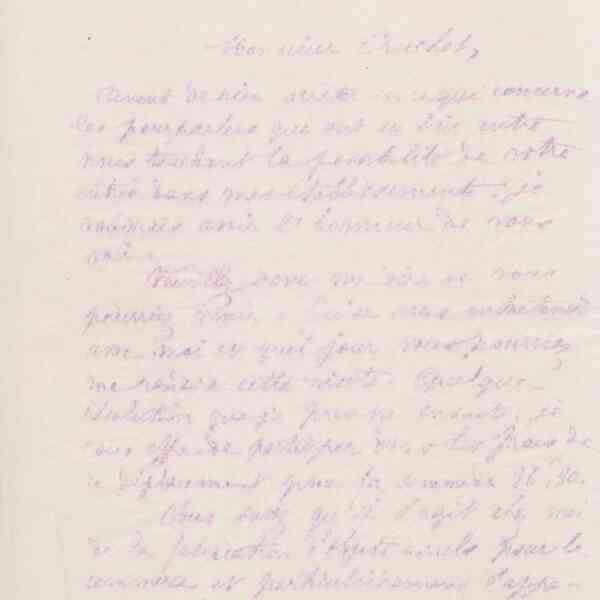 Monsieur Cruchet,
Avant de rien arrêter en ce qui concerne
les pourparlers qui ont eu lieu entre
nous touchant la possibilité de votre
entrée dans mes établissements, je
voudrais avoir l'honneur de vous
voir.
Veuillez donc me dire si vous
pourriez venir à vous entretenir
avec moi et quel jour vous pourriez
me rendre cette visite. Quelque
résolution que je prenne ensuite, je
vous offre de participer aux frais de
ce déplacement pour la somme
Vous savez qu'il s'agit chez moi
de la fabrication d'objets usuels pour le
commerce et particulièrement d'appa-